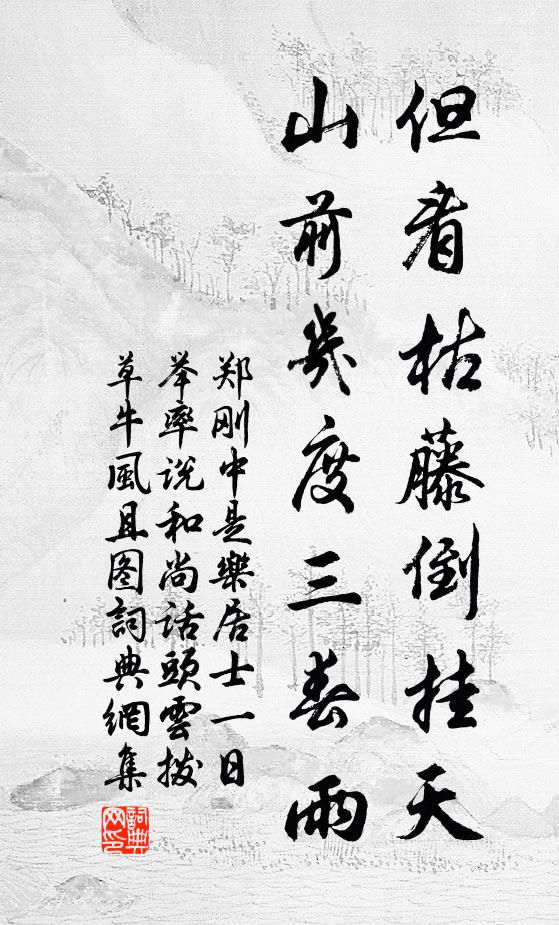 但看枯藤倒挂天
山前幾度三春雨
郑刚中是樂居士一日
举率说和尚话頭雲拨
草牛風且图詞典網集
詞典网印